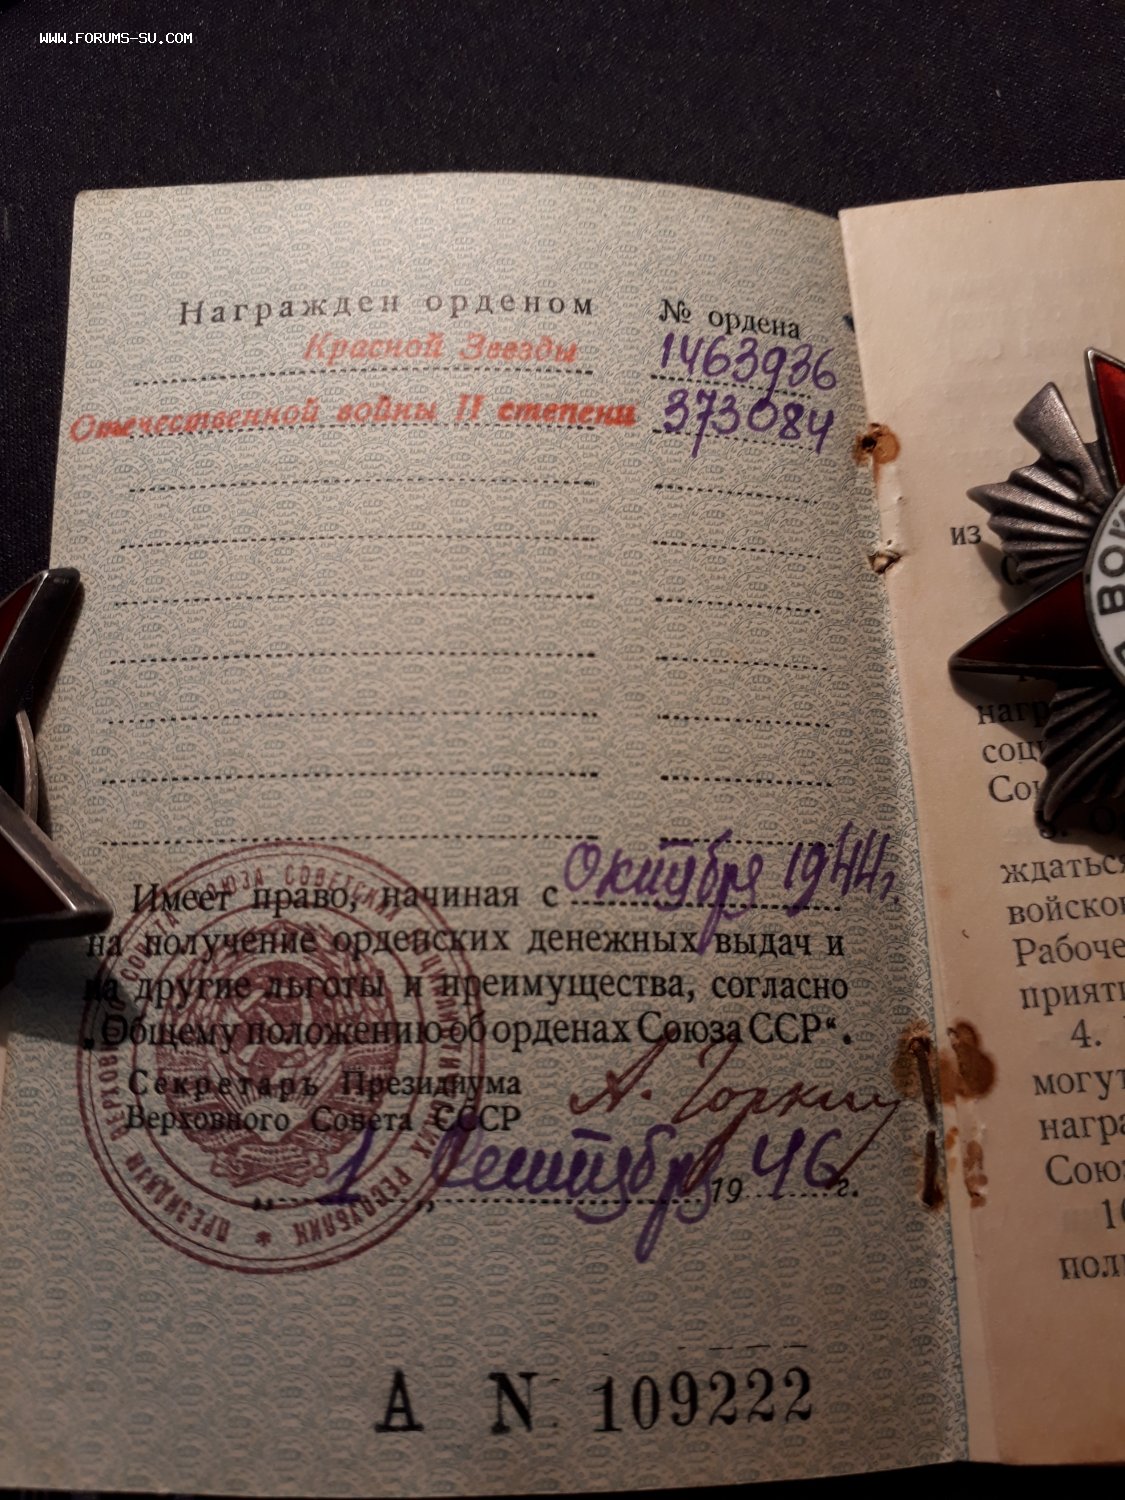 WWW.FORUMS-SU.COM
Награжден орденом № ордена
Красной Звезды 1463936
Отечественной войны II степени 373084
Имеет право, начиная с Октября 1944 г.
на получение орденских денежных выдач и
на другие льготы и преимущества, согласно
„Общему положению об орденах Союза ССР“.
Секретарь Президиума
Верховного Совета СССР
А. Горкин
„1„ Сентября 1946 г.
А N 109222
ПРЕЗИДИУМ ВЕРХОВНОГО СОВЕТА СОЮЗА СОВЕТСКИХ СОЦИАЛИСТИЧЕСКИХ РЕСПУБЛИК
из
нагр
соци
Сою
ждаться
войсков
Рабоче
прияти
4.
могут
награ
Союз
16
поли
ВОЙ